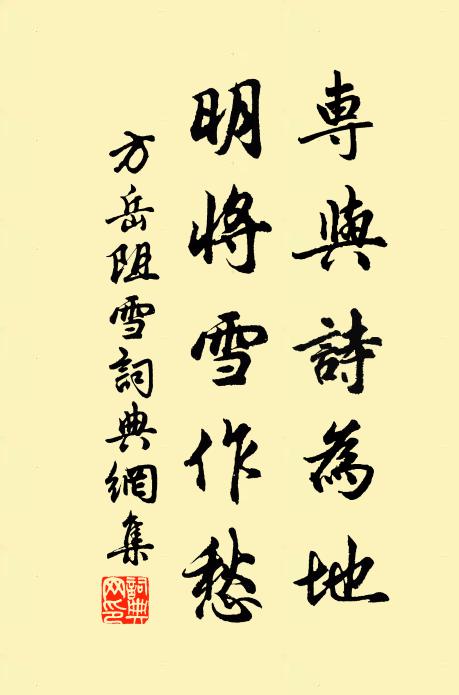 專與詩為地
明將雪作愁
方岳阻雪詞典網集
詞典網印